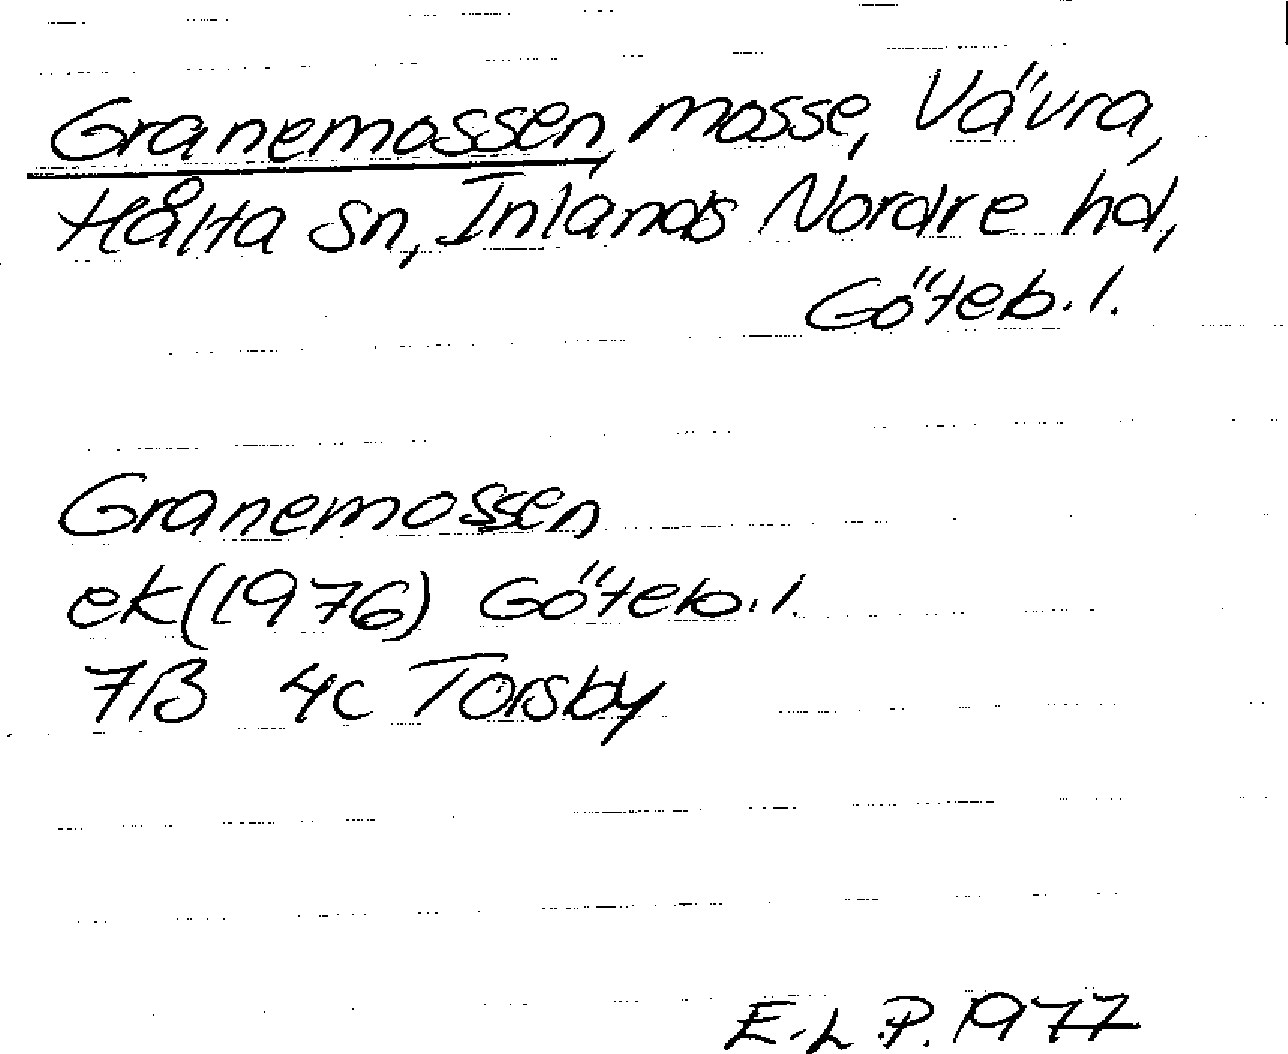 Granemossen, mosse, Vävra,
Hålta sn, Inlands Nordre hd,
Göteb. l.
Granemossen
ek (1976) Göteb. l.
7B 4c Torsby
E. L. P. 1977